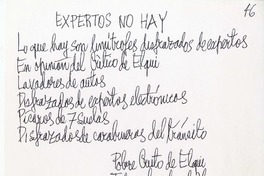 46
EXPERTOS NO HAY
Lo que hay son limítrofes disfrazados de expertos
En opinión del Cristo de Elqui
Lavadores de autos
Disfrazados de expertos electrónicos
Picaros de 7 suelas
Disfrazados de carabineros del tránsito
Pobre Cristo de Elqui